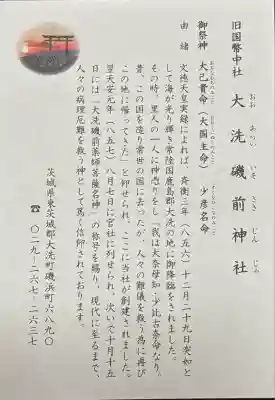 旧国幣中社
大洗磯前神社
おお あらい いそ さき じん じゃ
御祭神 大己貴命(大国主命) 少彦名命
由緒
文徳天皇実録によれば、斉衡三年(八五六)十二月二十九日突如と
して海が光り輝き常陸国鹿島郡大洗の地に御降臨をされました。
その時、里人の一人に神憑りをし「我は大奈母知・少比古奈命なり。
昔、この国を造り常世の国に去ったが、人々の難儀を救う為に再び
この地に帰ってきた」と仰せられ、ここに当社が創建されました。
翌天安元年(八五七)八月七日に官社に列せられ、次いで十月十五
日には「大洗磯前薬師菩薩名神」の称号を賜り、現代に至るまで、
人々の病理厄難を救う神として篤く信仰されております。
茨城県東茨城郡大洗町磯浜町六八九〇
☎〇二九-二六七-二六三七